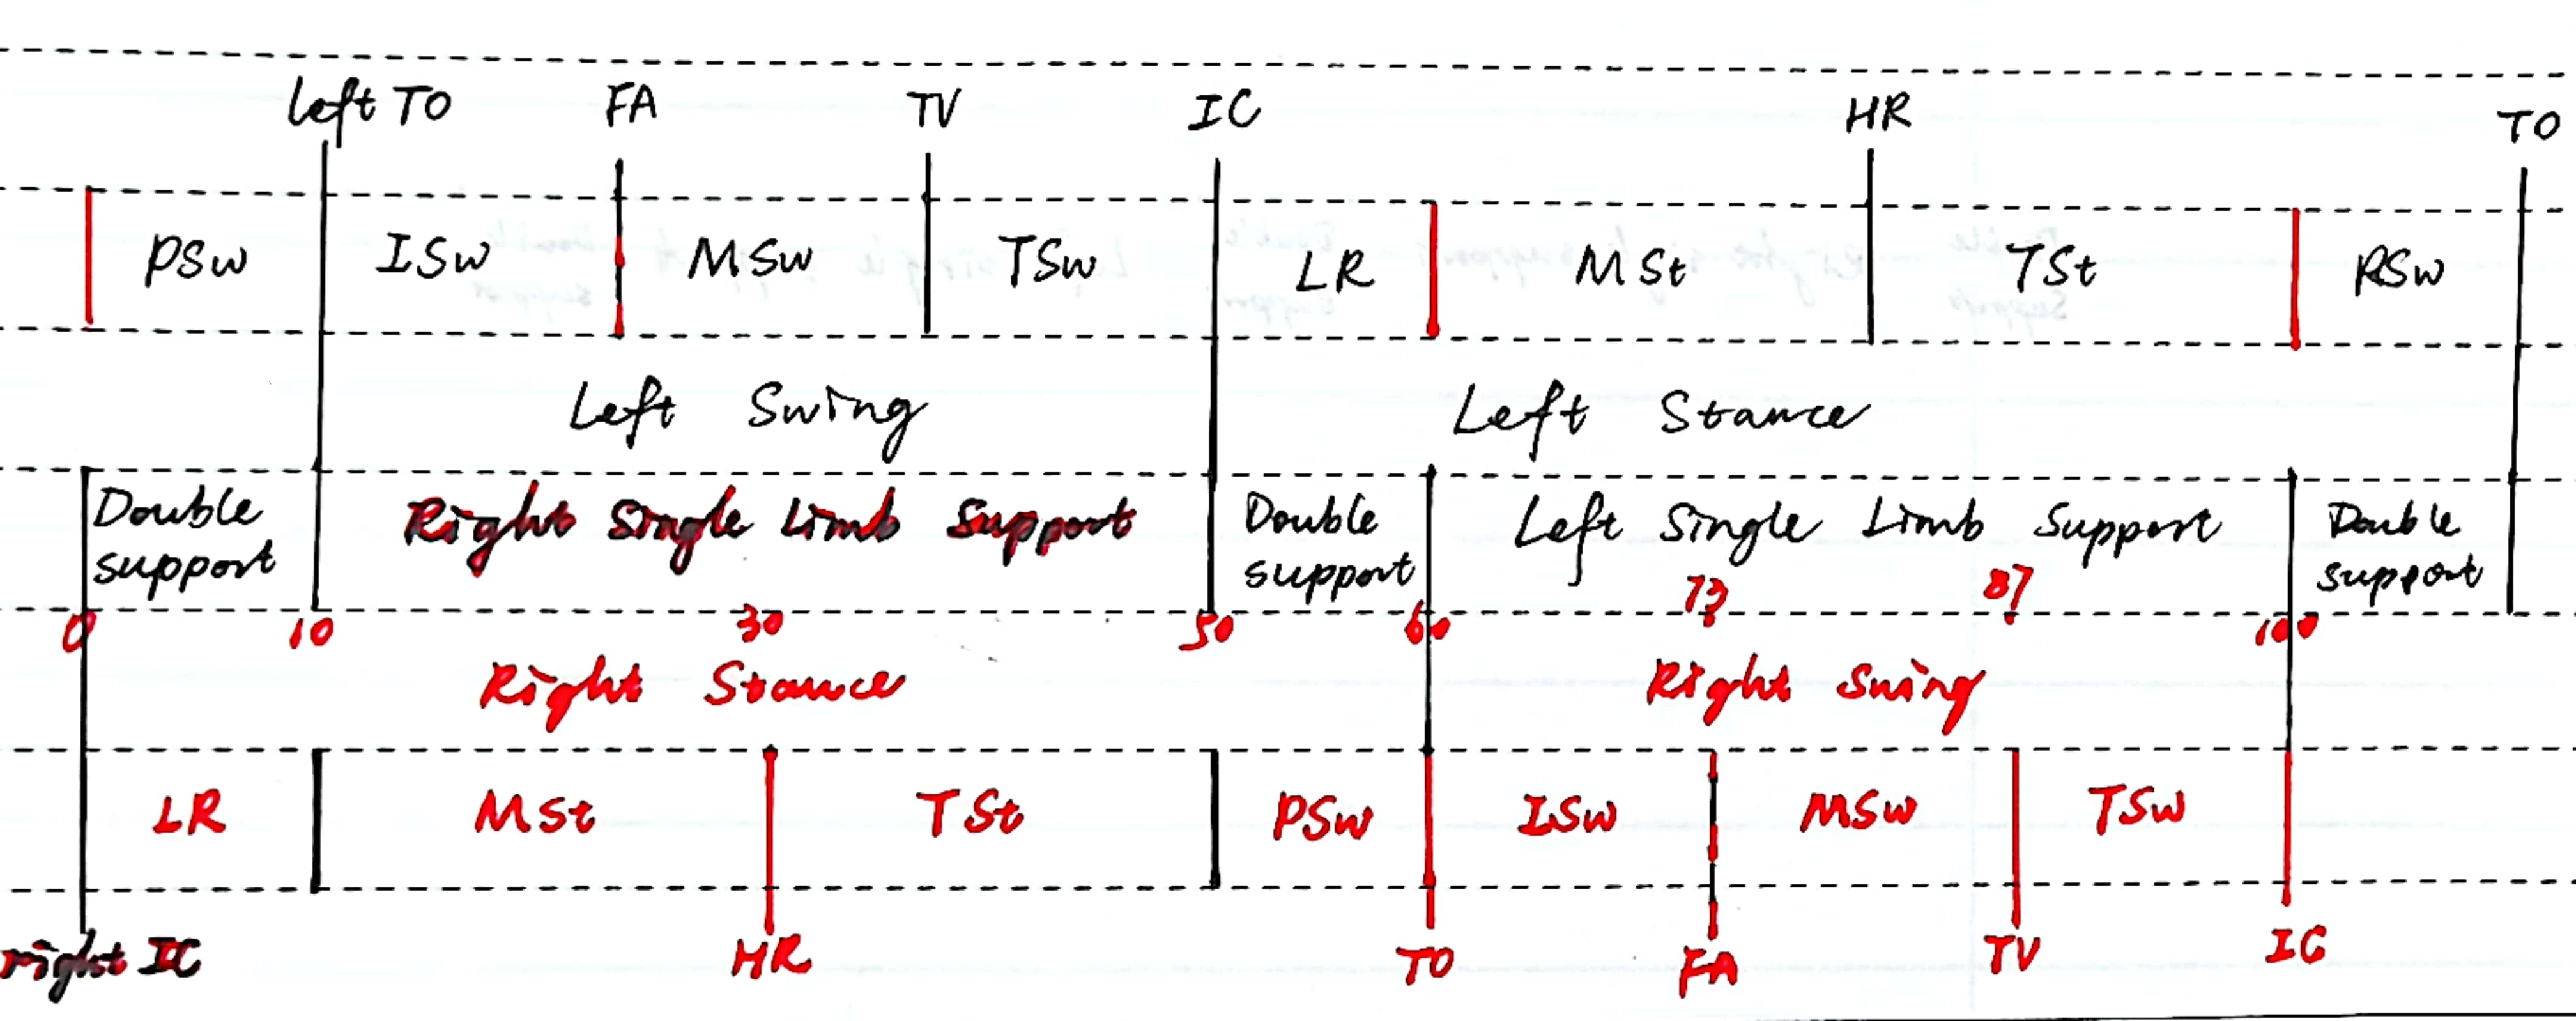 left TO FA TV IC HR TO
PSw ISw MSw TSw LR MSt TSt PSw
Left Swing Left Stance
Double support Right Single Limb Support Double support Left Single Limb Support Double support
0 10 30 50 60 73 87 100
Right Stance Right Swing
LR MSt TSt PSw ISw MSw TSw
right IC HR TO FA TV IC